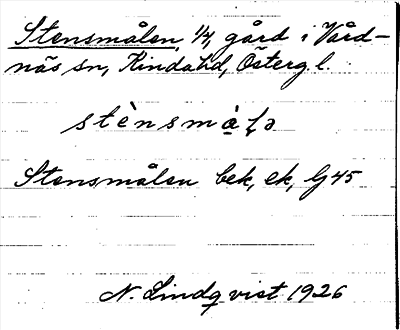 Stensmålen, 1/4, gård i Vård-
näs sn, Kinda hd, Österg l.
stènsmàlə
Stensmålen bek, ek, Gj 45
N. Lindqvist 1926